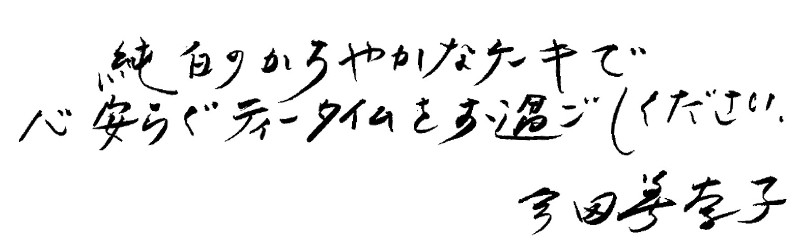 純白のかろやかなケーキで
心安らぐティータイムをお過ごしください。
今田美奈子